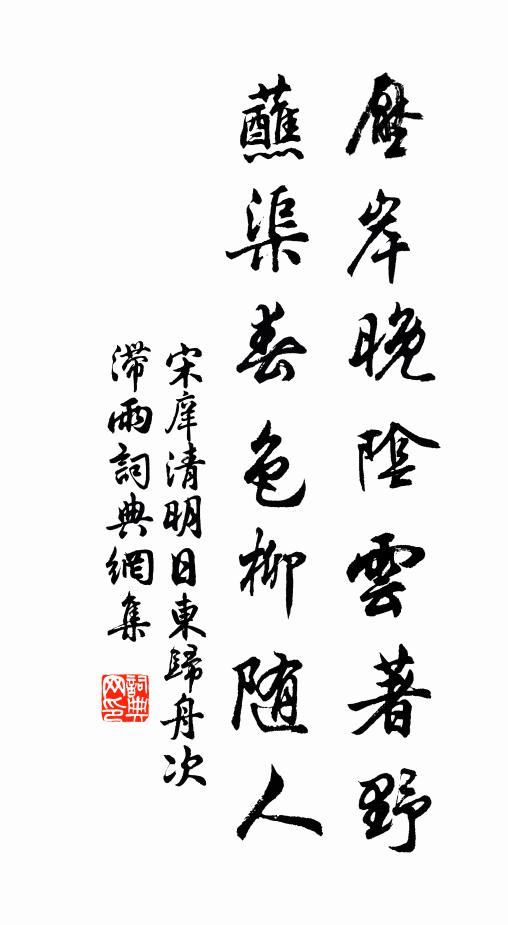 壓岸晚陰雲著野
蘸渠春色柳随人
宋庠清明日東歸舟次
滞雨詞典網集
詞典网印